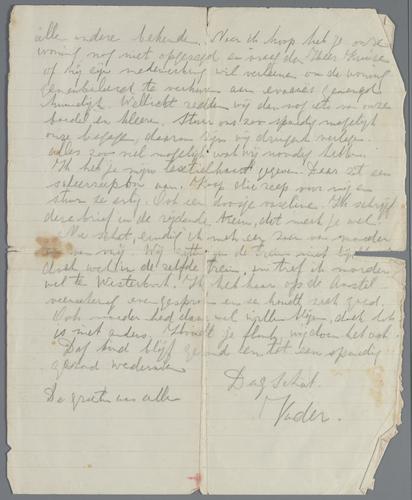 alle andere bekende. Maar ik hoop heb je onze
woning nog niet opgezegd en vraag den Heer
of hij zijn medewerking wil verleenen om de woning
gemeubileerd te verhuren aan evacués genoegd
huurlijk. Wellicht redden wij dan nog iets van onze
boedel en kleeren. Stuur ons zoo spoedig mogelijk
onze bagage, daarom zijn wij dringend verlegen.
alles zoo veel mogelijk wat wij noodig hebben.
Ik heb je mijn gegeven. Daar zit een
scheerzeepbon aan. Koop die zeep voor mij en
stuur ze erbij. Ook een doosje vaseline. Ik schrijf
deze brief in de rijdende trein, dat merk je wel.
Nu schat, eindig ik met een zoen van moeder
en van mij. Wij zitten in de trein niet bij
doch wel in de zelfde trein, en tref ik moeder
wel te Westerbork. Ik heb haar op de Amstel
even gesproken en ze houdt zich goed.
Ook moeder had daar wel willen blijven, doch dat
is niet anders. Houdt je flink, wij doen het ook.
Dag kind blijf gezond en tot een spoedig
gezond wederzien
Dag Schat.
De groeten aan alle
Vader.